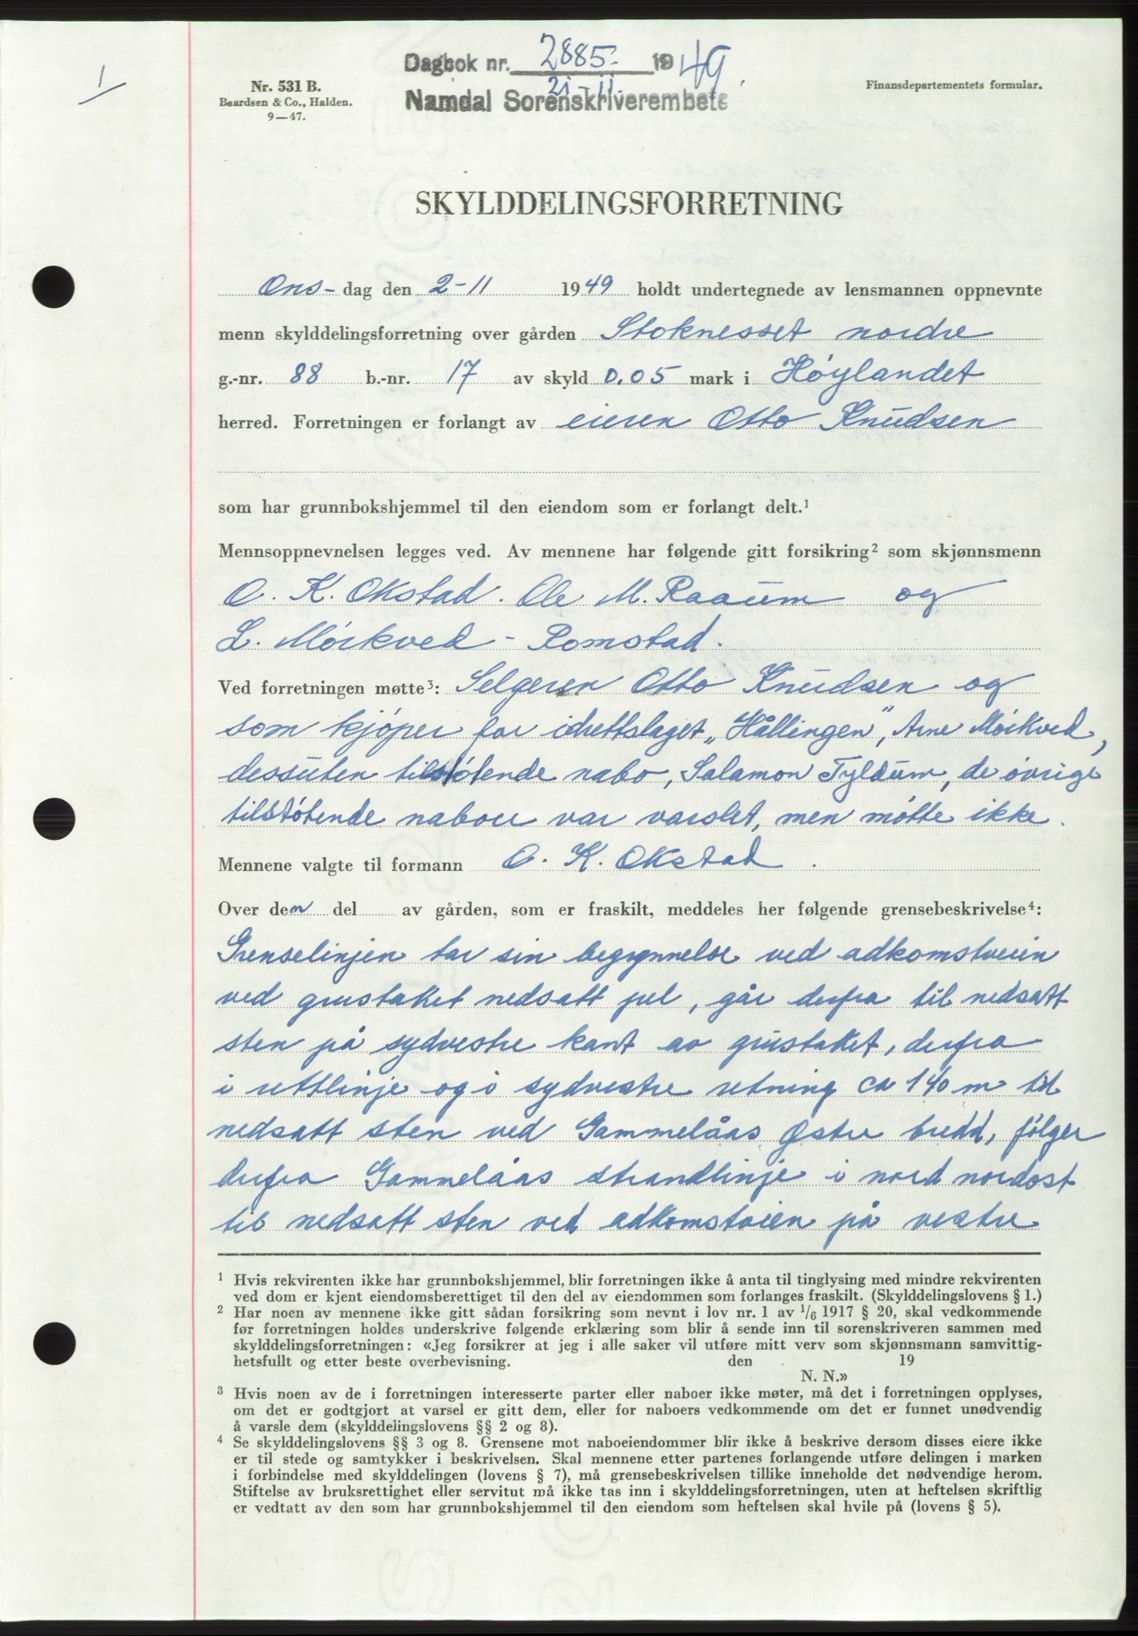 1
Dagbok nr. 2885. 1949.
21-11.
Nr. 531 B.
Baardsen & Co., Halden.
9—47.
Namdal Sorenskriverembete
Finansdepartementets formular.
SKYLDDELINGSFORRETNING
Ons- dag den 2-11 1949 holdt undertegnede av lensmannen oppnevnte
menn skylddelingsforretning over gården Stoknesset nordre
g.-nr. 88 b.-nr. 17 av skyld 0.05 mark i Høylandet
herred. Forretningen er forlangt av eieren Otto Knudsen
som har grunnbokshjemmel til den eiendom som er forlangt delt.¹
Mennsoppnevnelsen legges ved. Av mennene har følgende gitt forsikring² som skjønnsmenn
O. K. Okstad. Ole M. Raaum og
L. Mörkved - Romstad.
Ved forretningen møtte³: Selgeren Otto Knudsen og
som kjøper for idrettslaget „Hållingen", Arne Mörkved,
dessuten tilstøtende nabo, Salamon Tyldum, de øvrige
tilstøtende naboer var varslet, men møtte ikke.
Mennene valgte til formann O. K. Okstad.
Over den del av gården, som er fraskilt, meddeles her følgende grensebeskrivelse⁴:
Grenselinjen tar sin begynnelse ved adkomstveien
ved grustaket nedsatt pel, går derfra til nedsatt
sten på sydvestre kant av grustaket, derfra
i rettlinje og i sydvestre retning ca 140 m til
nedsatt sten ved Gammelåas Østre bredd, følger
derfra Gammelåas strandlinje i nord nordost
til nedsatt sten ved adkomstveien på vestre
¹ Hvis rekvirenten ikke har grunnbokshjemmel, blir forretningen ikke å anta til tinglysing med mindre rekvirenten
ved dom er kjent eiendomsberettiget til den del av eiendommen som forlanges fraskilt. (Skylddelingslovens § 1.)
² Har noen av mennene ikke gitt sådan forsikring som nevnt i lov nr. 1 av ¹/₆ 1917 § 20, skal vedkommende
før forretningen holdes underskrive følgende erklæring som blir å sende inn til sorenskriveren sammen med
skylddelingsforretningen: «Jeg forsikrer at jeg i alle saker vil utføre mitt verv som skjønnsmann samvittig-
hetsfullt og etter beste overbevisning. den 19
N. N.»
³ Hvis noen av de i forretningen interesserte parter eller naboer ikke møter, må det i forretningen opplyses,
om det er godtgjort at varsel er gitt dem, eller for naboers vedkommende om det er funnet unødvendig
å varsle dem (skylddelingslovens §§ 2 og 8).
⁴ Se skylddelingslovens §§ 3 og 8. Grensene mot naboeiendommer blir ikke å beskrive dersom disses eiere ikke
er til stede og samtykker i beskrivelsen. Skal mennene etter partenes forlangende utføre delingen i marken
i forbindelse med skylddelingen (lovens § 7), må grensebeskrivelsen tillike inneholde det nødvendige herom.
Stiftelse av bruksrettighet eller servitut må ikke tas inn i skylddelingsforretningen, uten at heftelsen skriftlig
er vedtatt av den som har grunnbokshjemmel til den eiendom som heftelsen skal hvile på (lovens § 5).